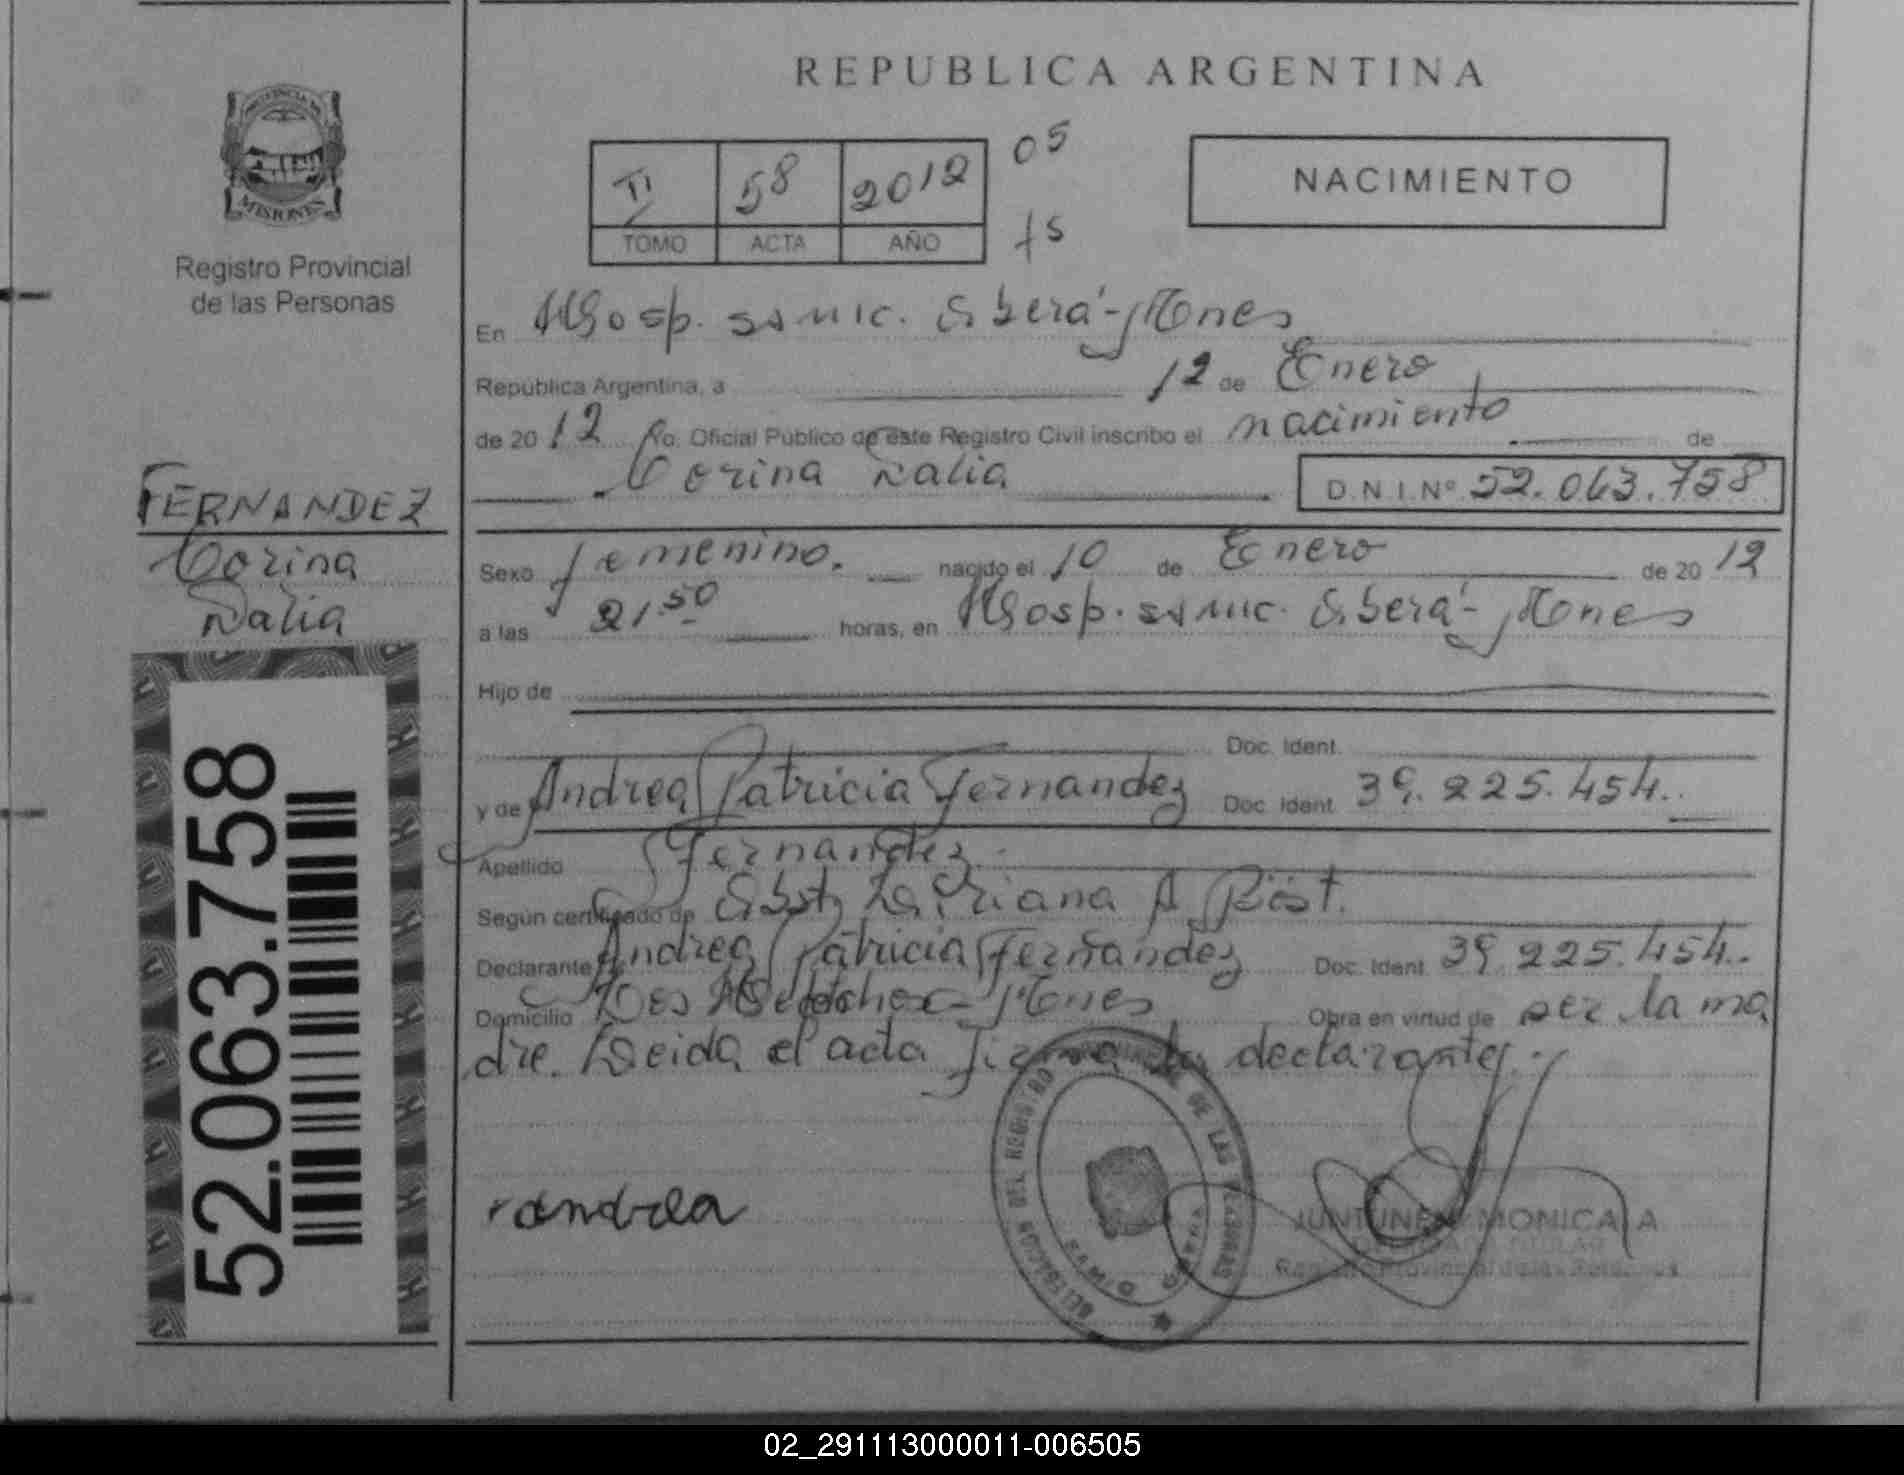 REPUBLICA ARGENTINA
PROVINCIA DE
MISIONES
Registro Provincial
de las Personas
58 2012 05
TOMO ACTA AÑO
NACIMIENTO
En Hosp. Oberá - Mnes
República Argentina, a 12 de Enero
de 2012 Yo. Oficial Público de este Registro Civil inscribo el nacimiento de
Corina Dalia D.N.I.Nº 52.063.758
FERNANDEZ
Corina
Dalia
Sexo femenino. nacido el 10 de Enero de 2012
a las 21.50 horas, en Hosp. Oberá - Mnes
Hijo de
Doc. Ident.
y de Andrea Patricia Fernandez Doc. Ident. 39.225.454.
Apellido Fernandez
Según certificado de Obst,
Declarante Andrea Patricia Fernandez Doc. Ident. 39.225.454.
Domicilio Mnes Obra en virtud de ser la ma
dre. Leida el acta firma la declarante.
52.063.758
andrea
DELEGACION DEL REGISTRO DE LAS PERSONAS
JUNTUNEN MONICA A
Registro Provincial de las Personas
02_291113000011-006505